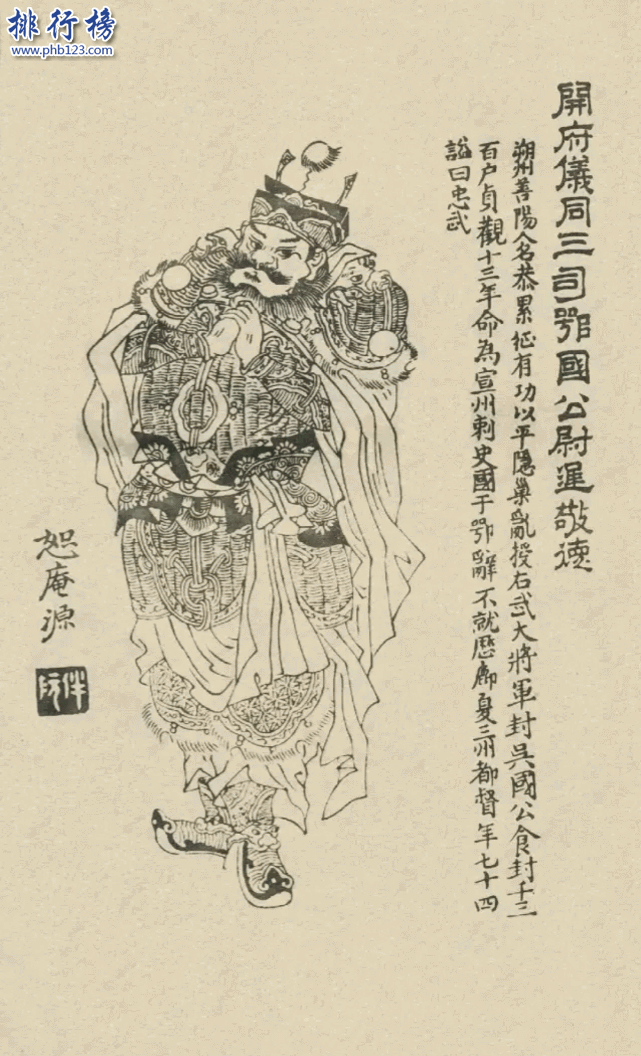 排行榜
www.phb123.com
開府儀同三司鄂國公尉遲敬德
朔州善陽人名恭累征有功以平隱巢亂授右武大將軍封吳國公食封千三
百户貞觀十三年命為宣州刺史國于鄂辭不就歷鄜夏三州都督年七十四
諡曰忠武
恕庵源
伴阮